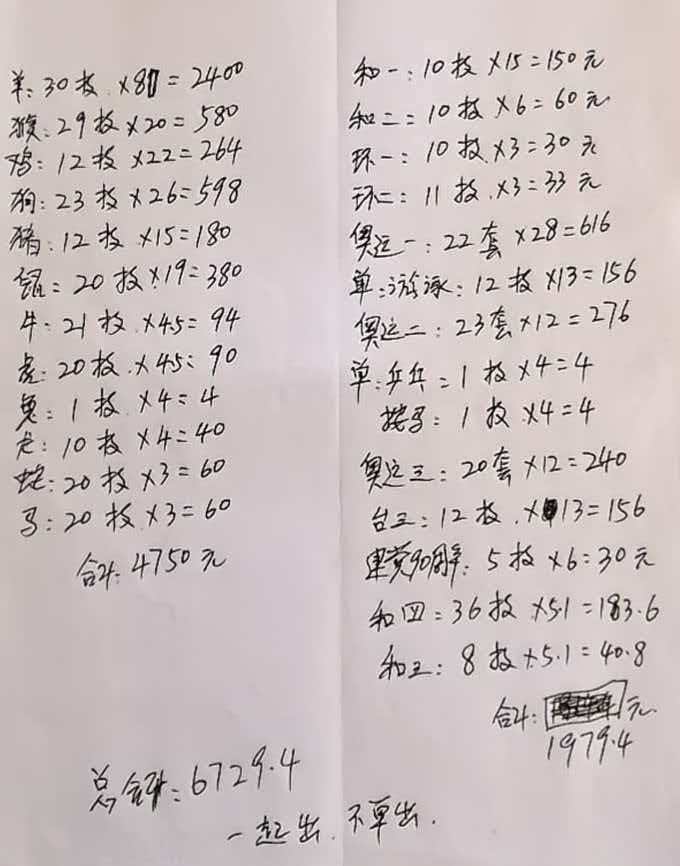 羊:30枚×80=2400
猴:29枚×20=580
鸡:12枚×22=264
狗:23枚×26=598
猪:12枚×15=180
鼠:20枚×19=380
牛:21枚×4.5=94
虎:20枚×4.5=90
兔:1枚×4=4
龙:10枚×4=40
蛇:20枚×3=60
马:20枚×3=60
合计:4750元
和一:10枚×15=150元
和二:10枚×6=60元
环一:10枚×3=30元
环二:11枚×3=33元
奥运一:22套×28=616
单:游泳:12枚×13=156
奥运二:23套×12=276
单:乒乓:1枚×4=4
鞍马:1枚×4=4
奥运三:20套×12=240
台三:12枚×13=156
建党90周年:5枚×6=30元
和四:36枚×5.1=183.6
和五:8枚×5.1=40.8
合计:元
1979.4
总合计:6729.4
一起出.不单出.